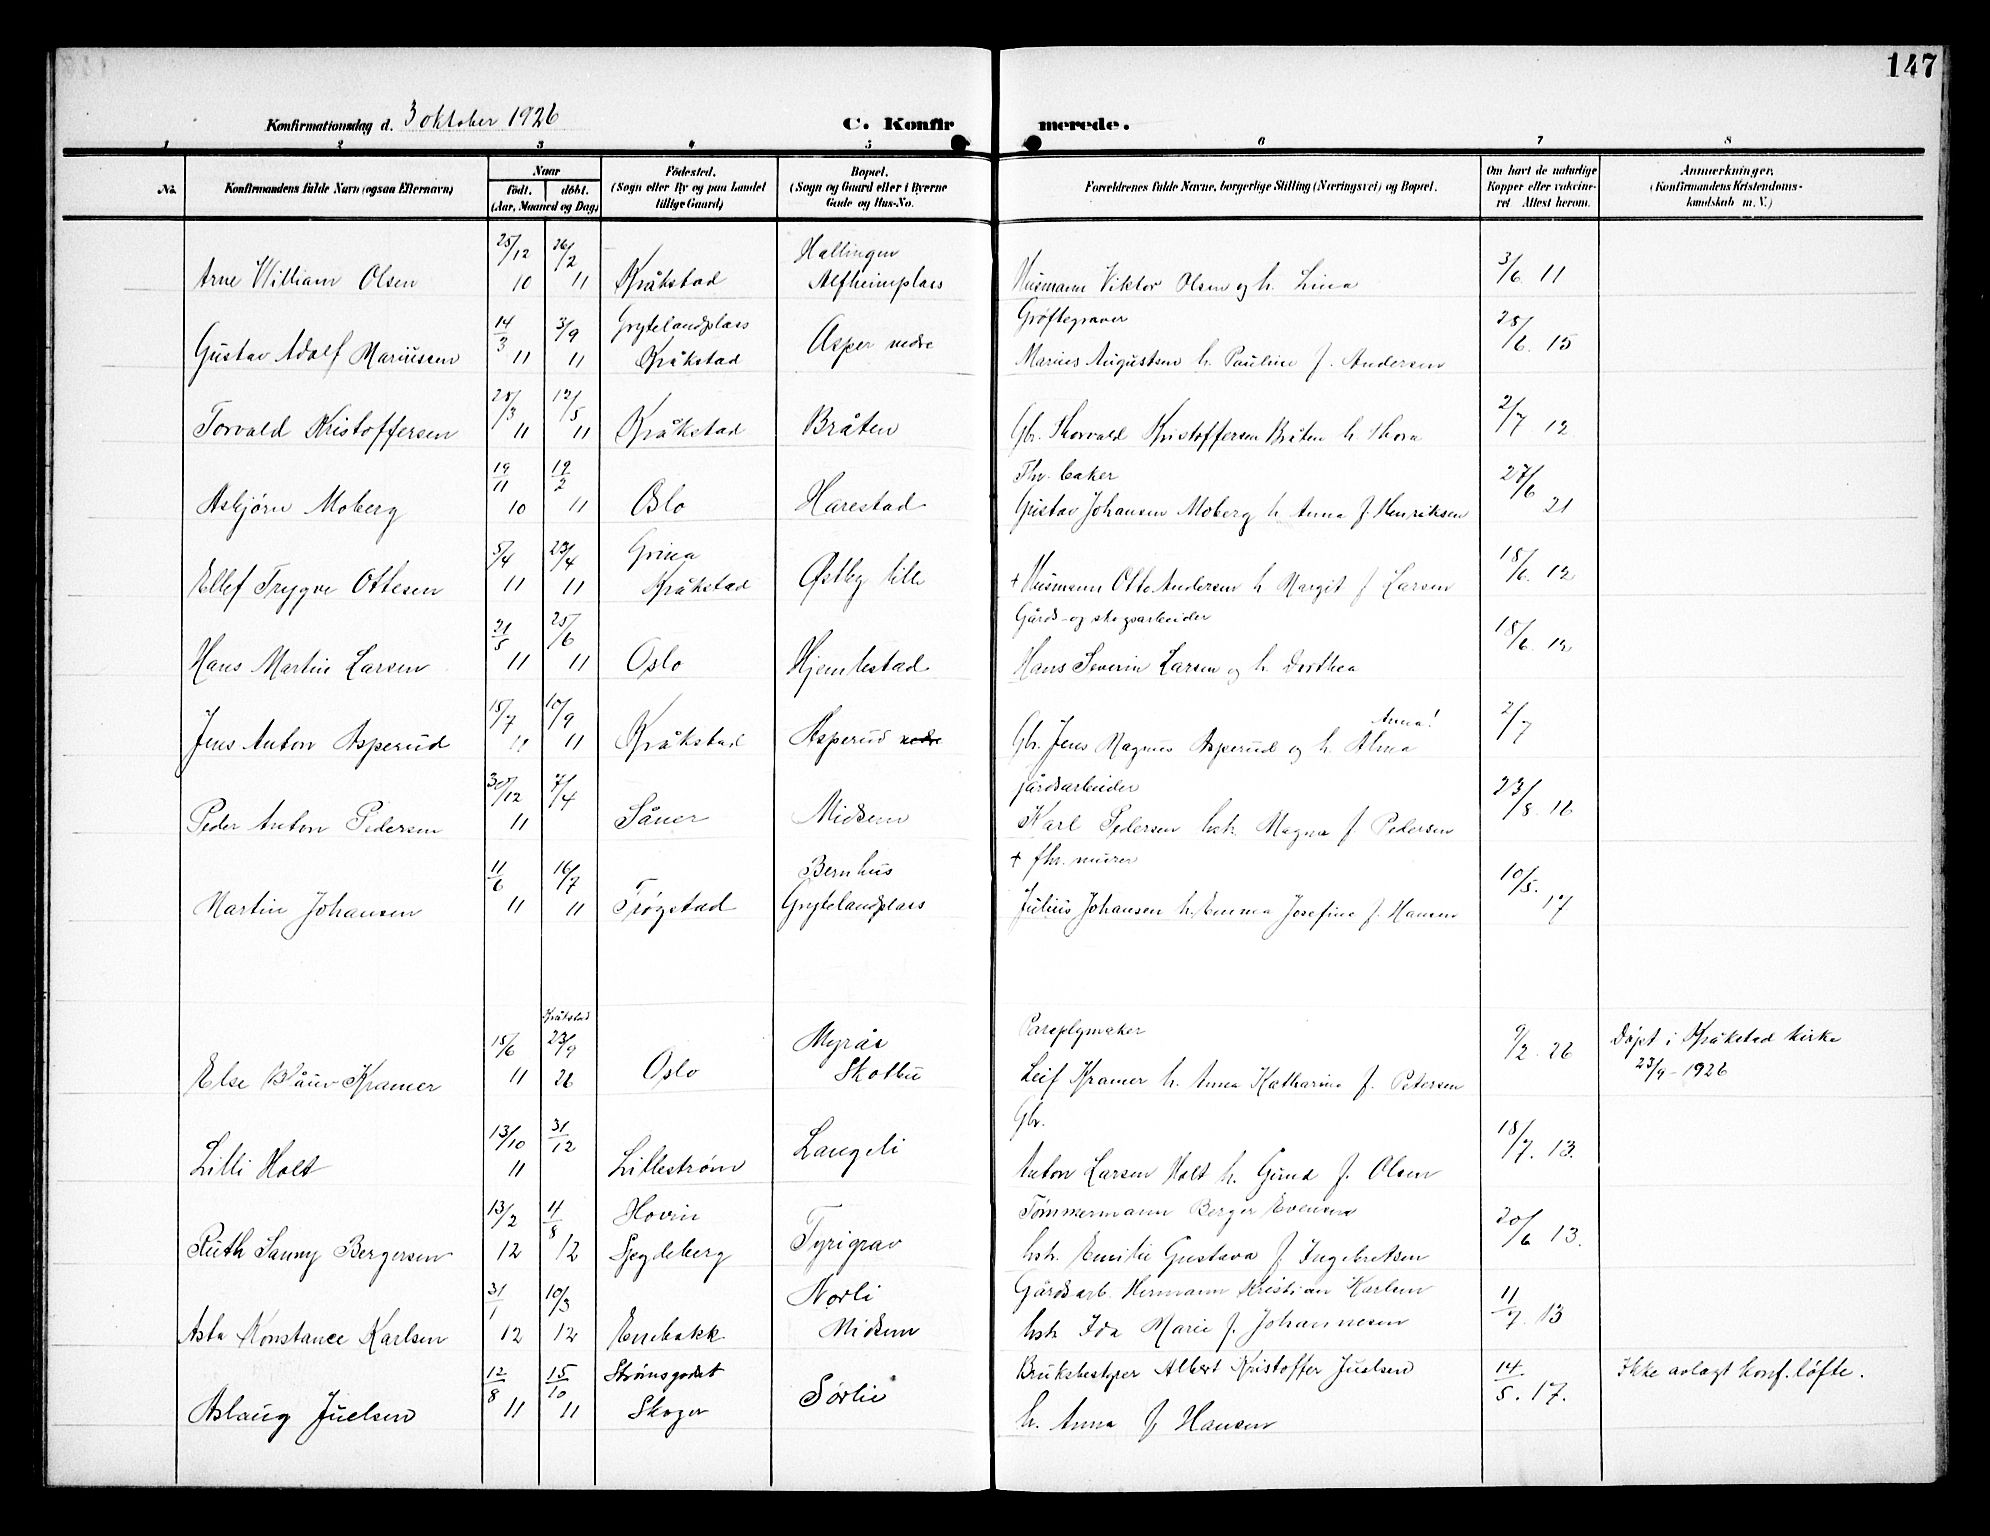 147
Konfirmationsdag d. 3 oktober 1926
C. Konfirmerede.
1 2 3 4 5 6 7 8
No.
Konfirmandens fulde Navn (ogsaa Efternavn)
Naar
født. døbt.
(Aar, Maaned og Dag)
Fødested.
(Sogn eller By og paa Landet
tillige Gaard)
Bopæl.
(Sogn og Gaard eller i Byerne
Gade og Hus-No.
Forældrenes fulde Navne, borgerlige Stilling (Næringsvei) og Bopæl.
Om havt de naturlige
Kopper eller vakcine-
ret Attest herom.
Anmærkninger.
(Konfirmandens Kristendoms-
kundskab m. V.)
25/12 26/2 Hallingen 3/6 11
Arne William Olsen 10 11 Kråkstad Alfheimplass Husmann Viktor Olsen og h. Lina
14/3 3/9 Grytelandplass Grøftegraver 28/6 15
Gustav Adolf Mariussen 11 11 Kråkstad Asper nedre Marius Augustsen h. Pauline f. Andersen
28/3 12/5 2/7 12
Torvald Kristoffersen 11 11 Kråkstad Bråten Gbr. Thorvald Kristoffersen Bråten h. Thora
19/11 19/2 Fhv. baker 27/6 21
Asbjørn Moberg 10 11 Oslo Harestad Gustav Johansen Moberg h. Anna f. Henriksen
5/4 23/4 Grina 18/6 12
Ellef Trygve Ottesen 11 11 Kråkstad Østby lille + Husmann Otto Andersen h. Margit f. Larsen
21/5 25/6 Gårds- og skogsarbeider 18/6 12
Hans Martin Larsen 11 11 Oslo Hjemlestad Hans Severin Larsen og h. Dorthea
18/7 10/9 Anna! 2/7
Jens Anton Asperud 11 11 Kråkstad Asperud nedre Gbr. Jens Magnus Asperud og h. Alma
30/12 7/4 gårdsarbeider 23/8 16
Peder Anton Pedersen 11 Såner Midsem Karl Pedersen hstr. Magna f. Pedersen
11/6 16/7 Bernhus + fhv. murer 10/5 17
Martin Johansen 11 11 Trøgstad Grytelandplass Julius Johansen h. Emma Josefine f. Hansen
Kråkstad
15/6 23/9 Myrås Paraplymaker 9/2 26 Døpt i Kråkstad kirke
Else Kramer 11 26 Oslo Skotbu Leif Kramer h. Anna Katharina f. Petersen 23/9-1926
13/10 31/12 Gbr. 18/7. 13.
Lilli Holt 11 Lillestrøm Langeli Anton Larsen Holt h. Gina f. Olsen
13/2 4/8 Hovin Tømmermann Berger Evensen 20/6 13.
Ruth Sanny Bergersen 12 12 Spydeberg Tyrigrav hstr. Emilie Gustava f. Ingebretsen
31/1 10/3 Norli Gårdsarb. Hermann Kristian Karlsen 11/7. 13
Asta Konstance Karlsen 12 12 Enebakk Midsem hstr. Ida Marie f. Johannesen
12/8 15/10 Strømsgodset Bruksbestyrer Albert Kristoffer Juelsen 14/5. 17. Ikke avlagt konf. løfte.
Aslaug Juelsen 11 11 Skoger Sørlie h. Anna f. Hansen